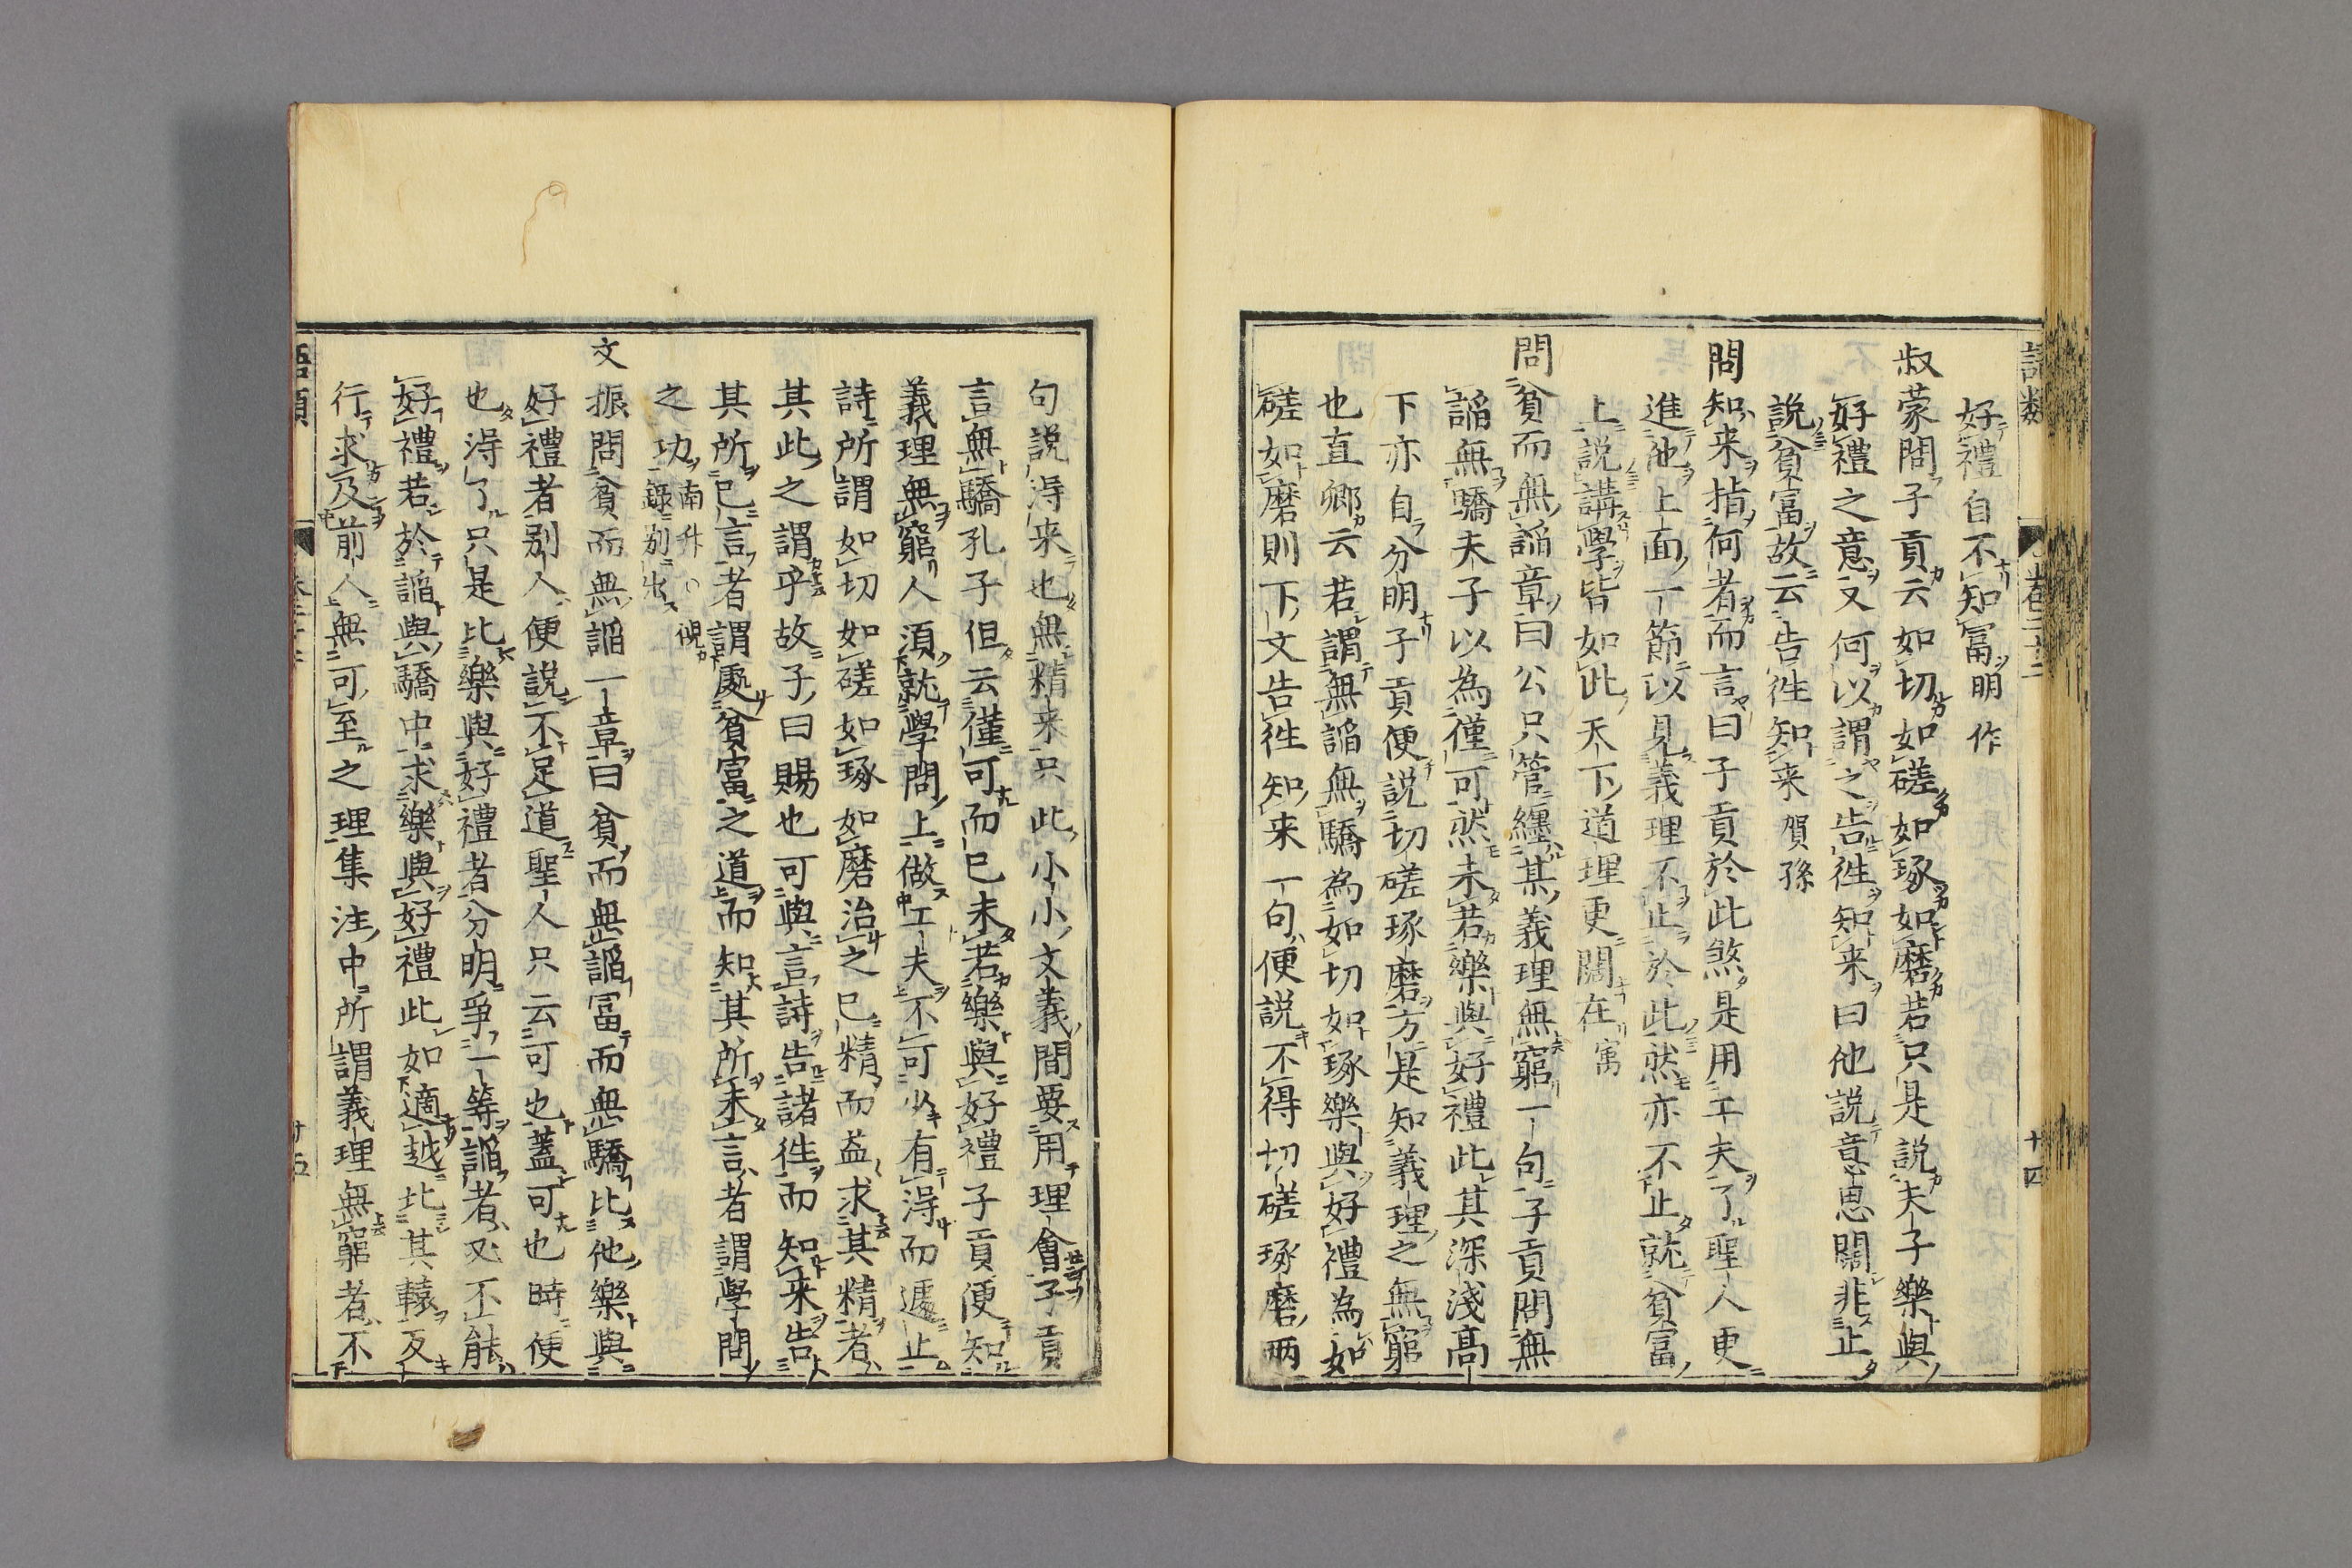 好禮自不知富明作
叔蒙問子貢云如切如磋如琢如磨若只是説夫子樂與
好禮之意又何以謂之告徃知来曰他説意思闊非止
説貧富故云告徃知来賀孫
問知来指何者而言曰子貢於此煞是用工夫了聖人更
進他上面一節以見義理不止於此然亦不止就貧富
上説講學皆如此天下道理更闊在㝢
問貧而無謟章曰公只管纒某義理無窮一句子貢問無
謟無驕夫子以為僅可然未若樂與好禮此其深淺高
下亦自分明子貢便説切磋琢磨方是知義理之無窮
也直卿云若謂無謟無驕為如切如琢樂與好禮為如
磋如磨則下文告徃知来一句便説不得切磋琢磨兩
句説淂来也無精来只此小小文義間要用理會子貢
言無驕孔子但云僅可而已未若樂與好禮子貢便知
義理無窮人須就學問上做工夫不可少有淂而遽止
詩所謂如切如磋如琢如磨治之已精而益求其精者
其此之謂乎故子曰賜也可與言詩告諸徃而知来告
其所已言者謂處貧富之道而知其所未言者謂學問
之功南升○覬錄別出
文振問貧而無謟一章曰貧而無謟冨而無驕比他樂與
好禮者别人便説不足道聖人只云可也蓋可也時便
也淂了只是比樂與好禮者分明爭一等謟者又不能
好禮若於謟與驕中求樂與好禮此如適越北其轅反
行求及前人無可至之理集注中所謂義理無窮者不